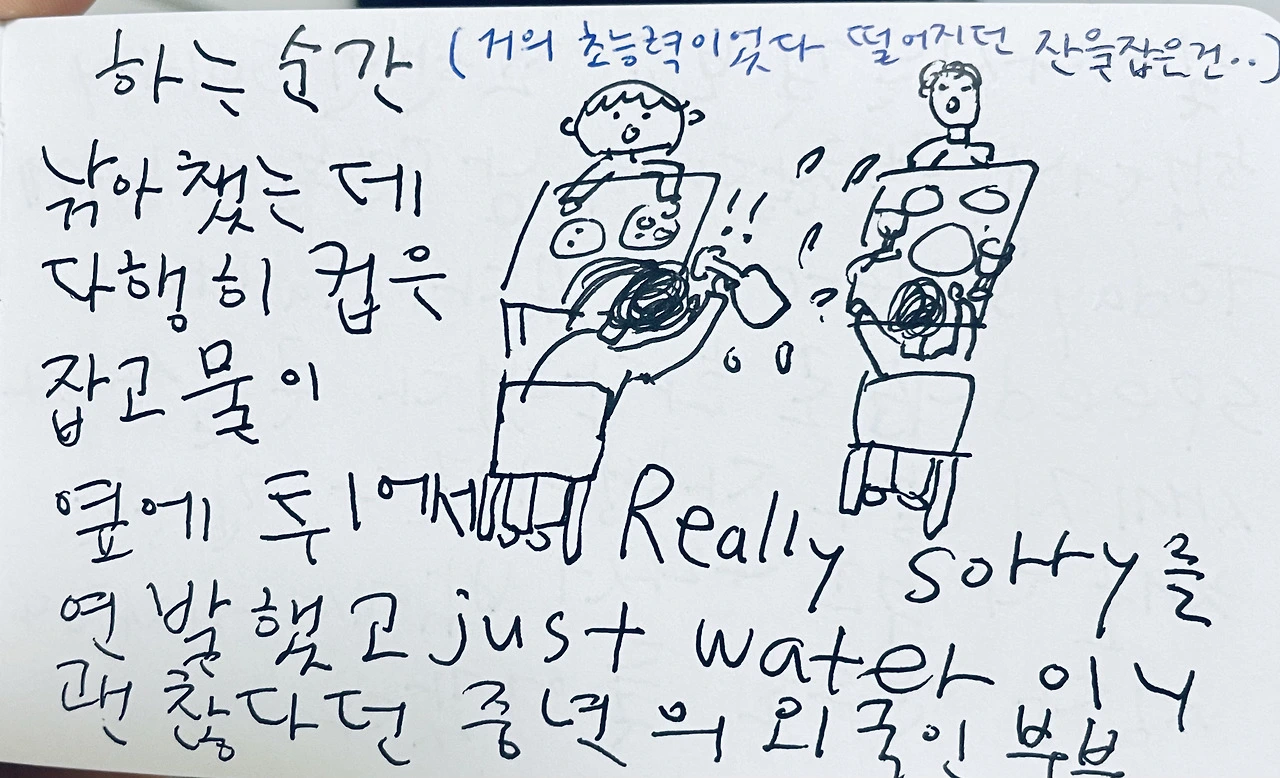 하는 순간 (거의 초능력이었다 떨어지던 잔을잡은건..)
낚아챘는데
다행히 컵은
잡고 물이
옆에 튀어서 Really sorry를
연발했고 just water 이니
괜찮다던 중년의 외국인 부부
!!
?